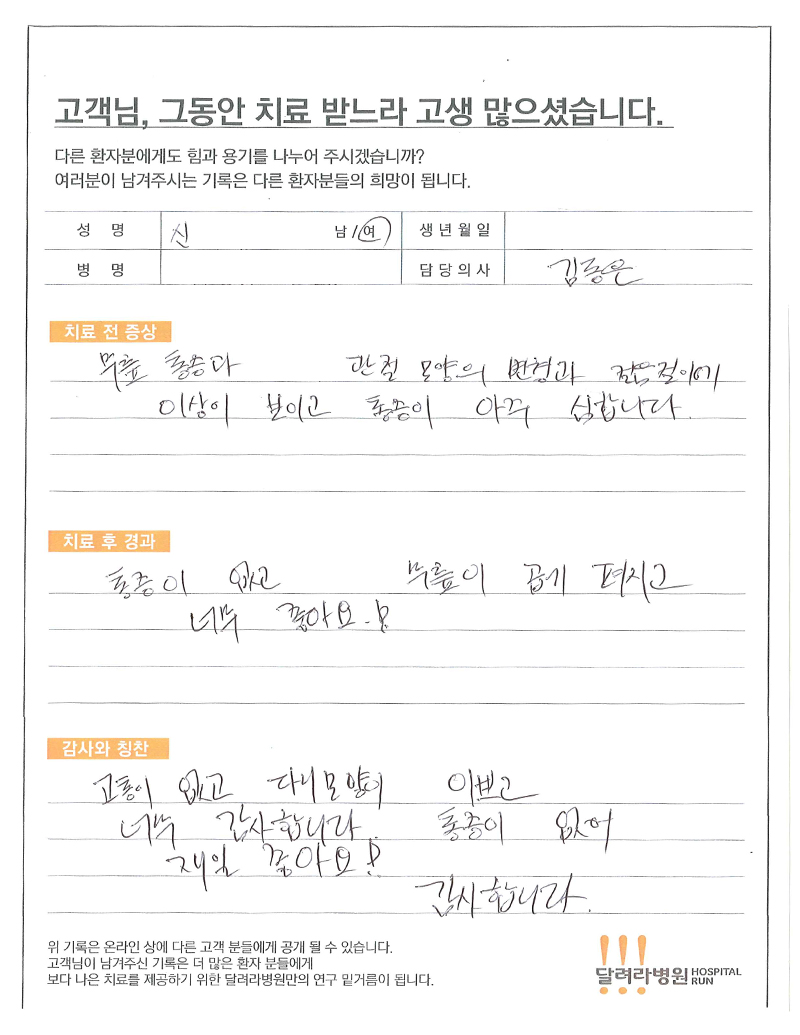 고객님, 그동안 치료 받느라 고생 많으셨습니다.
다른 환자분에게도 힘과 용기를 나누어 주시겠습니까?
여러분이 남겨주시는 기록은 다른 환자분들의 희망이 됩니다.
성 명 신 남 / 여 생년월일
병 명 담당의사 김종은
치료 전 증상
무릎 통증과 관절 모양의 변형과
이상이 보이고 통증이 아주 심합니다.
치료 후 경과
통증이 없고 무릎이 곱게 펴지고
너무 좋아요.!
감사와 칭찬
고통이 없고 다리모양이 이쁘고
너무 감사합니다. 통증이 없어
제일 좋아요!
감사합니다.
위 기록은 온라인 상에 다른 고객 분들에게 공개 될 수 있습니다.
고객님이 남겨주신 기록은 더 많은 환자 분들에게
보다 나은 치료를 제공하기 위한 달려라병원만의 연구 밑거름이 됩니다.
!!!
달려라병원 HOSPITAL RUN